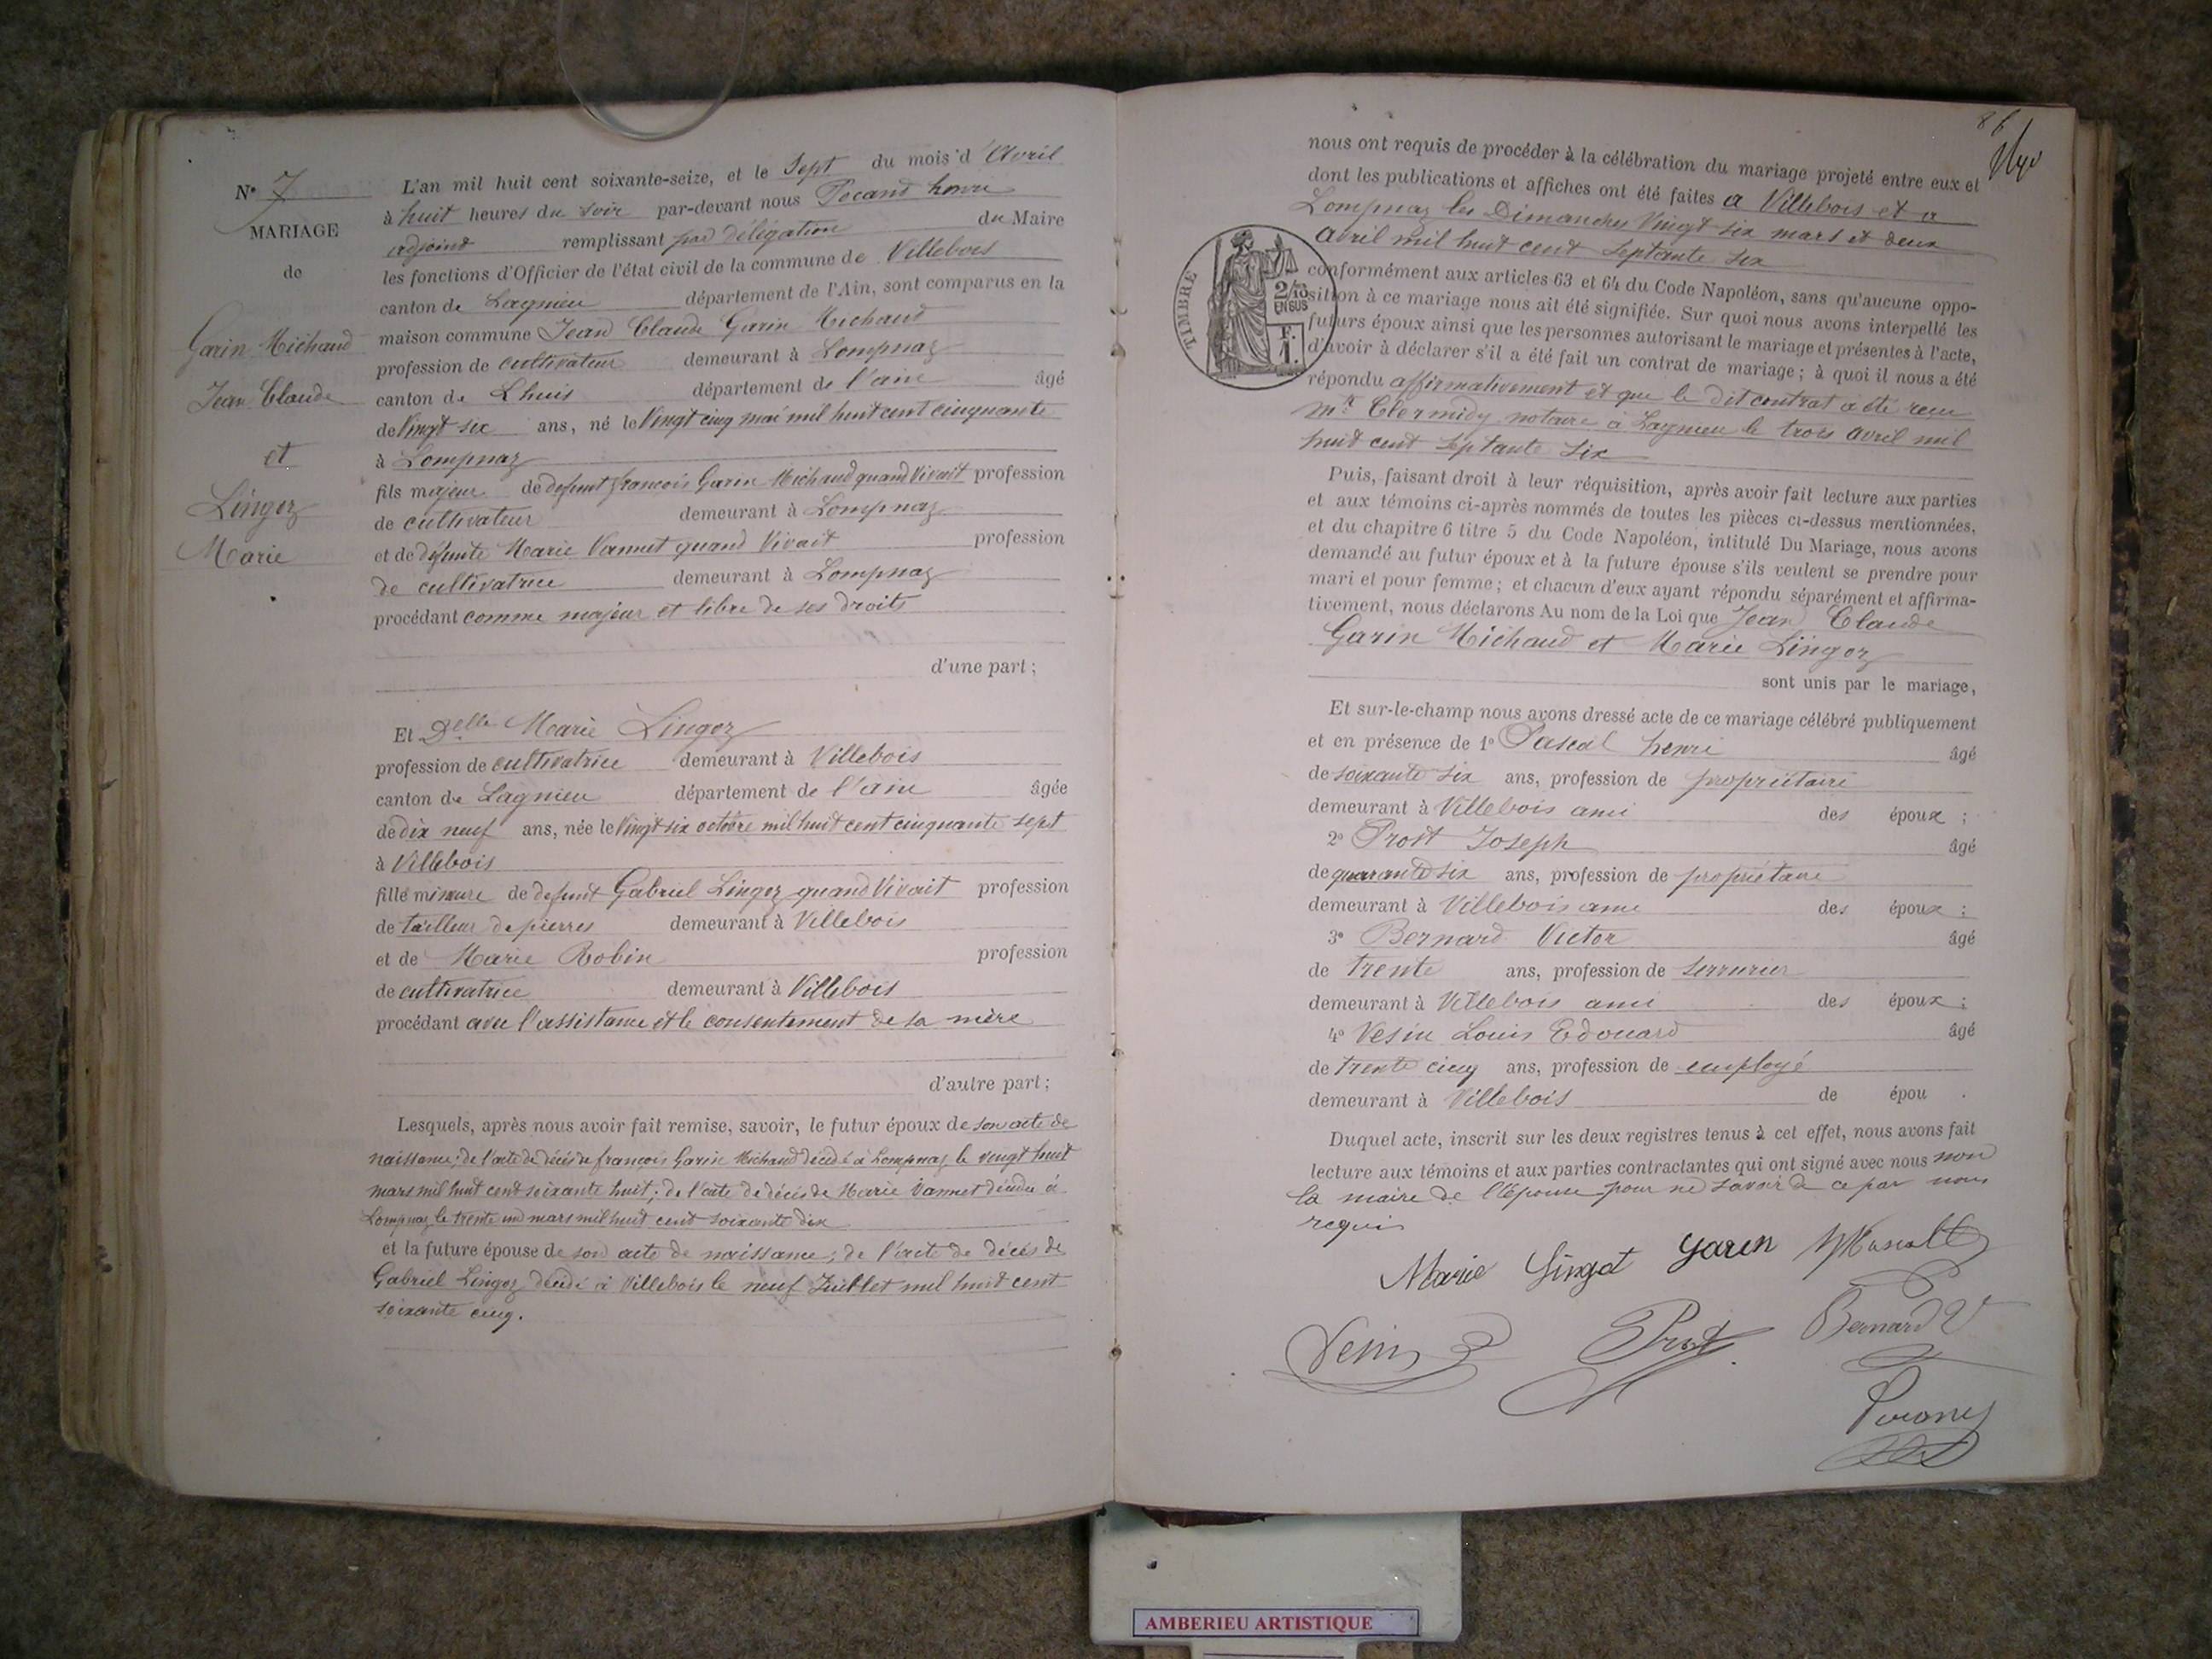 N° 7
MARIAGE
de
Garin Michaud
Jean Claude
et
Lingoz
Marie
L'an mil huit cent soixante-seize, et le Sept du mois d'Avril
à huit heures du soir par-devant nous Pecand henri
adjoint remplissant par délégation du Maire
les fonctions d'Officier de l'état civil de la commune de Villebois
canton de Lagnieu département de l'Ain, sont comparus en la
maison commune Jean Claude Garin Michaud
profession de cultivateur demeurant à Lompnaz
canton de Lhuis département de l'ain âgé
de Vingt six ans, né le Vingt cinq mai mil huit cent cinquante
à Lompnaz
fils majeur de defunt françois Garin Michaud quand Vivait profession
de cultivateur demeurant à Lompnaz
et de défunte Marie Vannet quand Vivait profession
de cultivatrice demeurant à Lompnaz
procédant comme majeur et libre de ses droits
d'une part ;
Et Delle Marie Lingoz
profession de cultivatrice demeurant à Villebois
canton de Lagnieu département de l'ain âgée
de dix neuf ans, née le Vingt six octobre mil huit cent cinquante sept
à Villebois
fille mineure de defunt Gabriel Lingoz quand Vivait profession
de tailleur de pierres demeurant à Villebois
et de Marie Robin profession
de cultivatrice demeurant à Villebois
procédant avec l'assistance et le consentement de sa mère
d'autre part ;
Lesquels, après nous avoir fait remise, savoir, le futur époux de son acte de
naissance ; de l'acte de décès de françois Garin Michaud décédé à Lompnaz le vingt huit
mars mil huit cent soixante huit ; de l'acte de décès de Marie Vannet décédée à
Lompnaz le trente un mars mil huit cent soixante dix
et la future épouse de son acte de naissance ; de l'acte de décès de
Gabriel Lingoz décédé à Villebois le neuf Juillet mil huit cent
soixante cinq.
86
nous ont requis de procéder à la célébration du mariage projeté entre eux et
dont les publications et affiches ont été faites a Villebois et a
Lompnaz les Dimanches Vingt six mars et deux
avril mil huit cent septante six
TIMBRE
2/10
EN SUS
F.
1.
conformément aux articles 63 et 64 du Code Napoléon, sans qu'aucune oppo-
sition à ce mariage nous ait été signifiée. Sur quoi nous avons interpellé les
futurs époux ainsi que les personnes autorisant le mariage et présentes à l'acte,
d'avoir à déclarer s'il a été fait un contrat de mariage ; à quoi il nous a été
répondu affirmativement et que le dit contrat a été reçu
Mr Clermidy notaire à Lagnieu le trois avril mil
huit cent septante six
Puis, faisant droit à leur réquisition, après avoir fait lecture aux parties
et aux témoins ci-après nommés de toutes les pièces ci-dessus mentionnées,
et du chapitre 6 titre 5 du Code Napoléon, intitulé Du Mariage, nous avons
demandé au futur époux et à la future épouse s'ils veulent se prendre pour
mari et pour femme ; et chacun d'eux ayant répondu séparément et affirma-
tivement, nous déclarons Au nom de la Loi que Jean Claude
Garin Michaud et Marie Lingoz
sont unis par le mariage,
Et sur-le-champ nous avons dressé acte de ce mariage célébré publiquement
et en présence de 1° Pascal henri âgé
de soixante six ans, profession de propriétaire
demeurant à Villebois ami des époux ;
2° Prost Joseph âgé
de quarante six ans, profession de propriétaire
demeurant à Villebois ami des époux ;
3° Bernard Victor âgé
de trente ans, profession de serrurier
demeurant à Villebois ami des époux ;
4° Vesin Louis Edouard âgé
de trente cinq ans, profession de employé
demeurant à Villebois de épou .
Duquel acte, inscrit sur les deux registres tenus à cet effet, nous avons fait
lecture aux témoins et aux parties contractantes qui ont signé avec nous non
la maire de l'épouse pour ne savoir de ce par nous
requis
Marie Lingot Garin
Vesin Prost Bernard V
AMBERIEU ARTISTIQUE